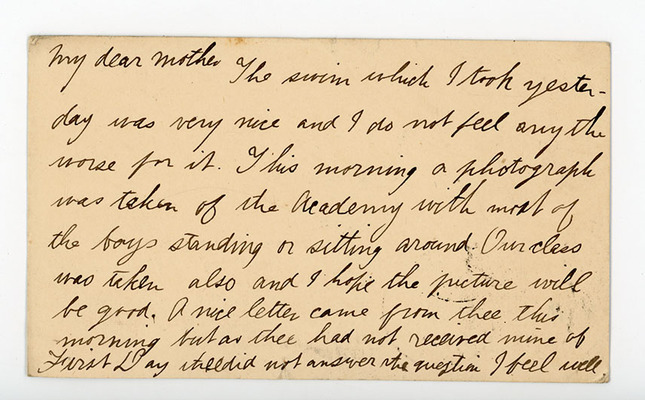 My dear mother The swim which I took yester-
day was very nice and I do not feel any the
worse for it. This morning a photograph
was taken of the Academy with most of
the boys standing or sitting around. Our class
was taken also and I hope the picture will
be good. A nice letter came from thee this
morning but as thee had not received mine of
First Day thee did not answer the question I feel well